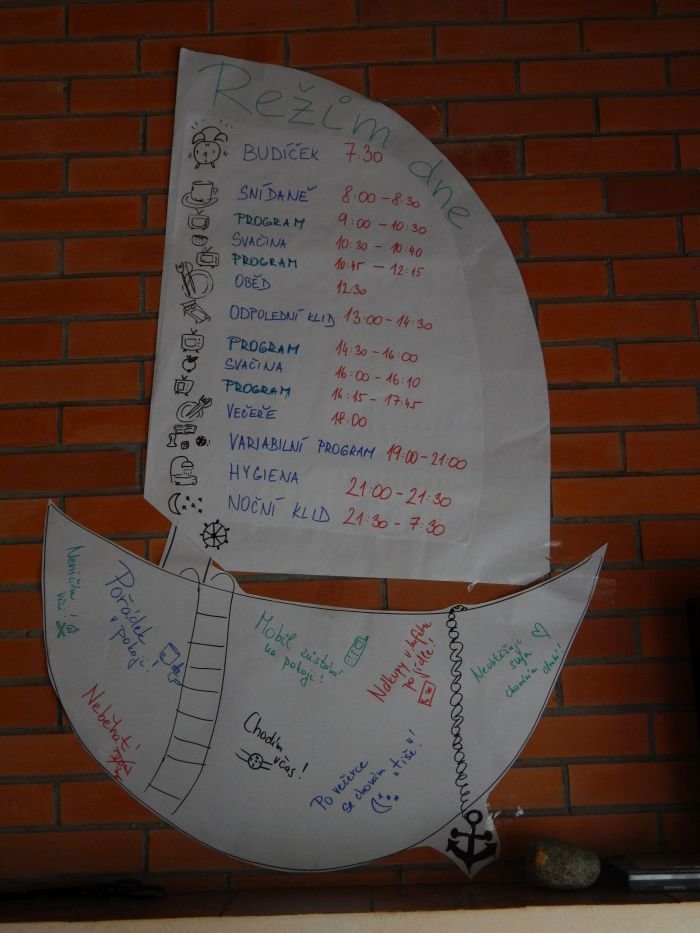 Režim dne
BUDÍČEK 7:30
SNÍDANĚ 8:00 - 8:30
PROGRAM 9:00 - 10:30
SVAČINA 10:30 - 10:40
PROGRAM 10:45 - 12:15
OBĚD 12:30
ODPOLEDNÍ KLID 13:00 - 14:30
PROGRAM 14:30 - 16:00
SVAČINA 16:00 - 16:10
PROGRAM 16:15 - 17:45
VEČEŘE 18:00
VARIABILNÍ PROGRAM 19:00 - 21:00
HYGIENA 21:00 - 21:30
NOČNÍ KLID 21:30 - 7:30
Neničím
věci
Pořádek
v pokoji!
Neběhat!
Mobil zůstává
na pokoji!
Chodím
včas!
Nákupy v bufetu
po jídle!
Po večerce
se chovám "tiše"!
Neobtěžuji
svým
chováním